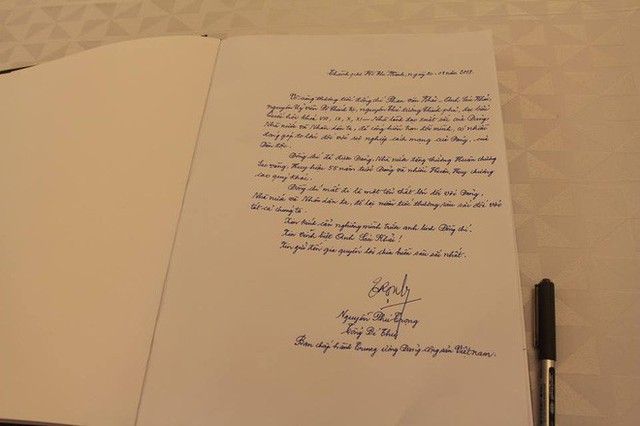 Thành phố Hồ Chí Minh, ngày 20-3 năm 2018.
Vô cùng thương tiếc đồng chí Phan Văn Khải, Anh Sáu Khải,
nguyên Uỷ viên Bộ Chính trị, nguyên Thủ tướng Chính phủ, đại biểu
Quốc hội khoá VIII, IX, X, XI — Nhà lãnh đạo xuất sắc của Đảng,
Nhà nước và Nhân dân ta, đã cống hiến trọn đời mình, có nhiều
đóng góp to lớn đối với sự nghiệp cách mạng của Đảng, của
Dân tộc.
Đồng chí đã được Đảng, Nhà nước tặng thưởng Huân chương
Sao vàng, Huy hiệu 55 năm tuổi Đảng và nhiều Huân, Huy chương
cao quý khác.
Đồng chí mất đi là một tổn thất lớn đối với Đảng,
Nhà nước và Nhân dân ta, để lại niềm tiếc thương sâu sắc đối với
tất cả chúng ta.
Xin kính cẩn nghiêng mình trước anh linh Đồng chí.
Xin vĩnh biệt Anh Sáu Khải!
Xin gửi đến gia quyến lời chia buồn sâu sắc nhất.
Nguyễn Phú Trọng
Tổng Bí Thư
Ban chấp hành Trung ương Đảng cộng sản Việt Nam.